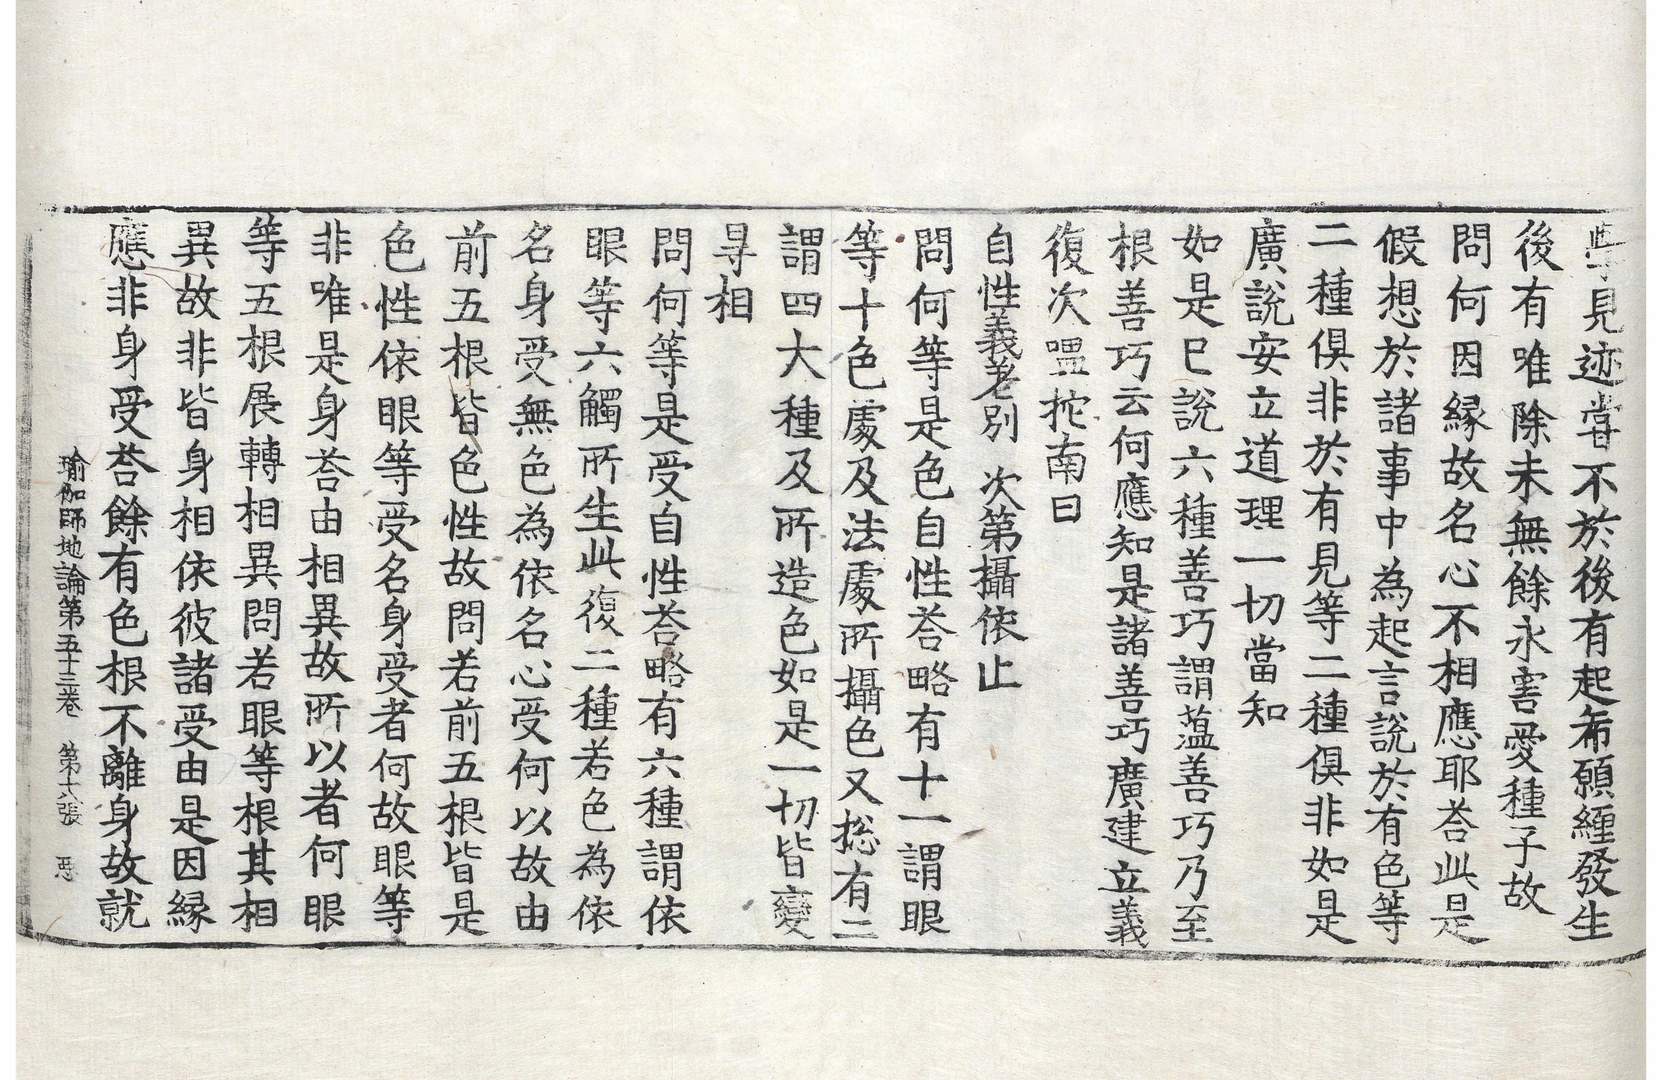 學見迹當不於後有起希願纏發生
後有唯除未無餘永害愛種子故
問何因縁故名心不相應耶荅此是
假想於諸事中為起言說於有色等
二種俱非於有見等二種俱非如是
廣說安立道理一切當知
如是已說六種善巧謂蘊善巧乃至
根善巧云何應知是諸善巧廣建立義
復次嗢拕南曰
自性義差別　次第攝依止
問何等是色自性荅略有十一謂眼
等十色處及法處所攝色又揔有二
謂四大種及所造色如是一切皆變
㝵相
問何等是受自性荅略有六種謂依
眼等六觸所生此復二種若色為依
名身受無色為依名心受何以故由
前五根皆色性故問若前五根皆是
色性依眼等受名身受者何故眼等
非唯是身荅由相異故所以者何眼
等五根展轉相異問若眼等根其相
異故非皆身相依彼諸受由是因縁
應非身受荅餘有色根不離身故就
瑜伽師地論第五十三卷　第十八張　惡